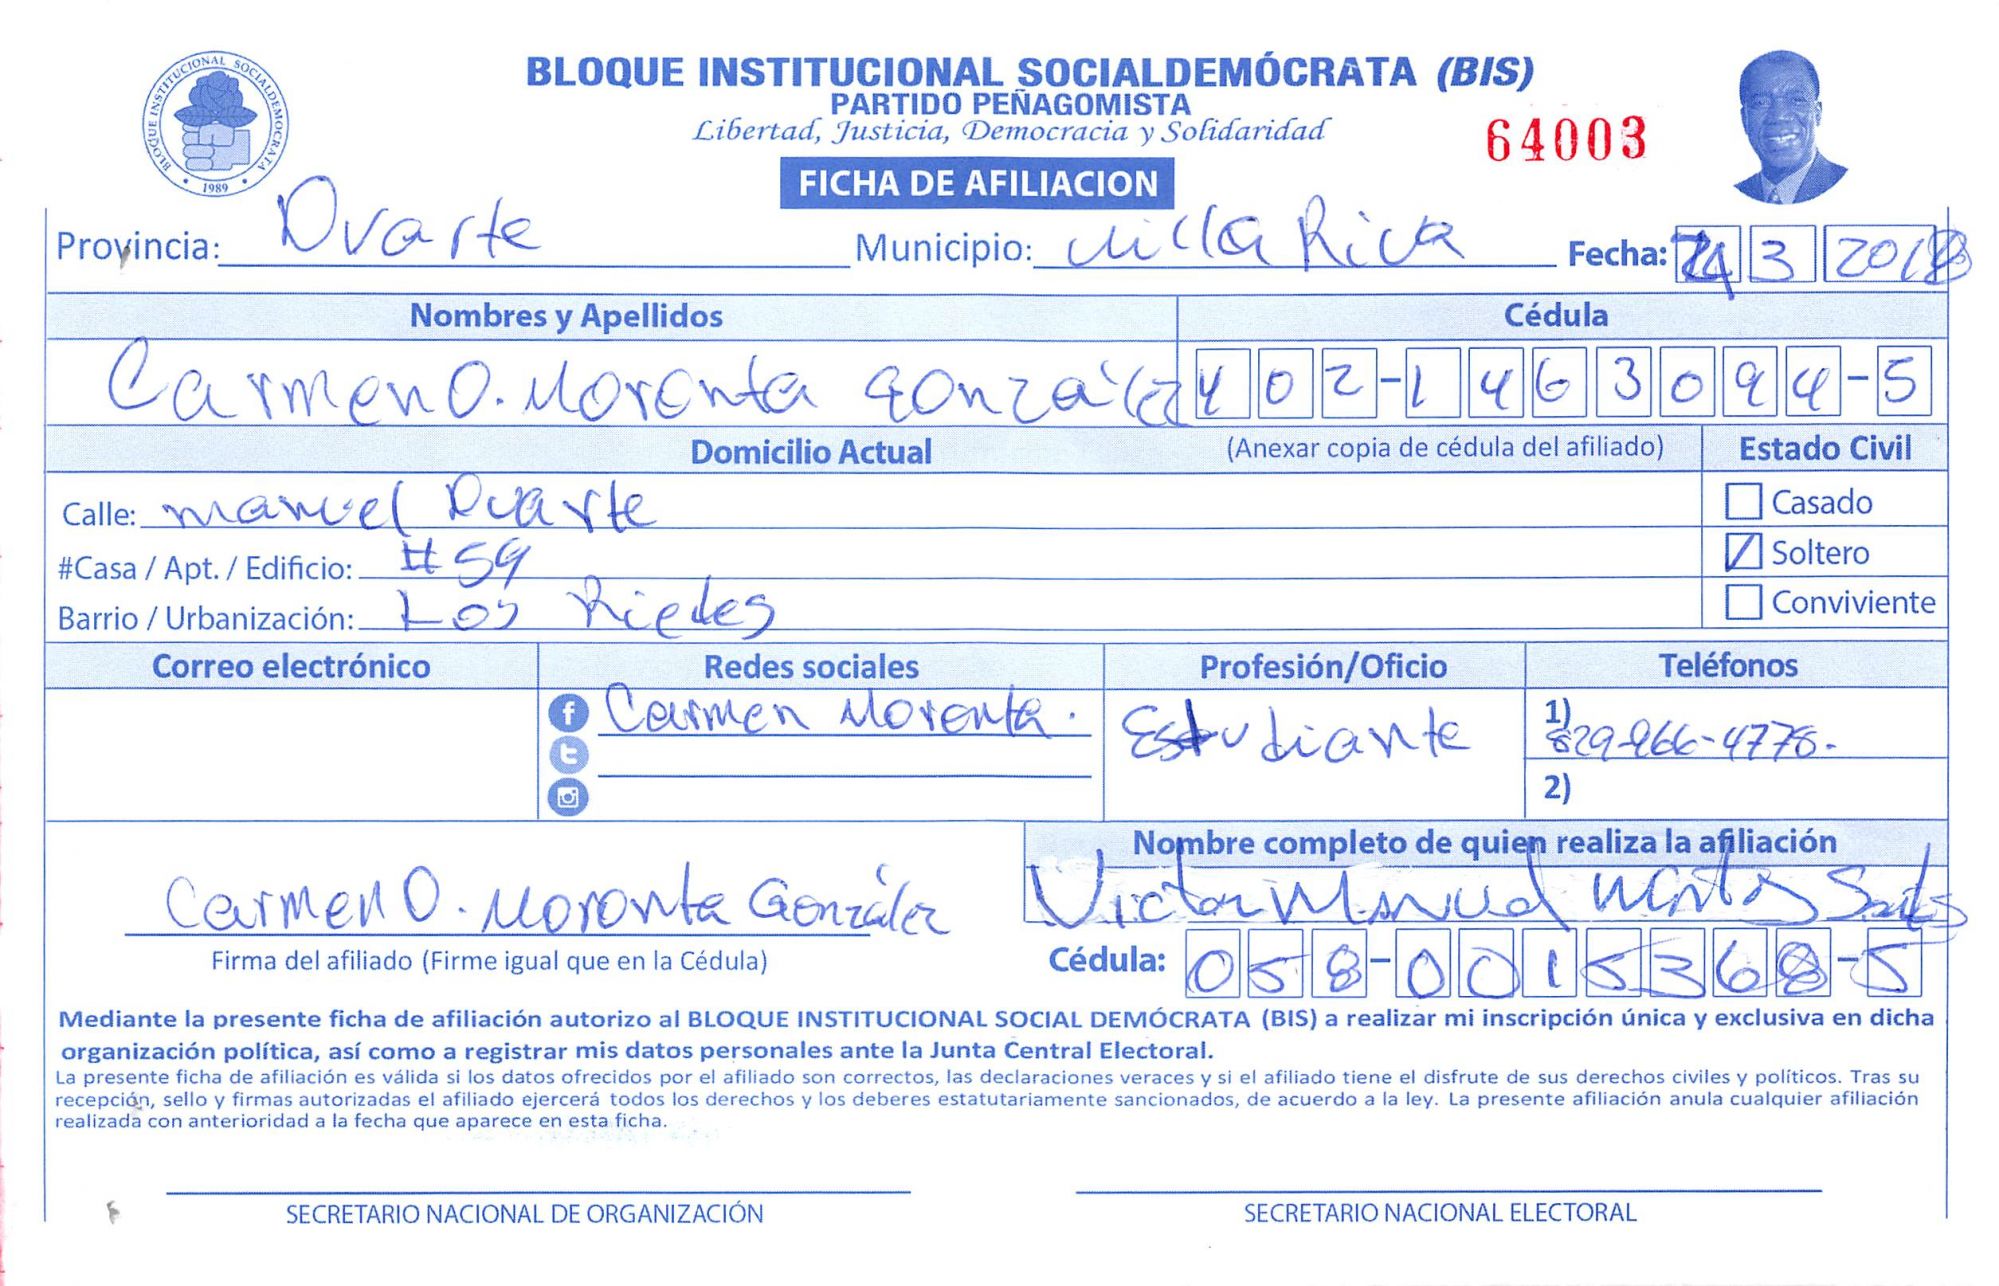 BLOQUE INSTITUCIONAL SOCIALDEMÓCRATA
1989
BLOQUE INSTITUCIONAL SOCIALDEMÓCRATA (BIS)
PARTIDO PEÑAGOMISTA
Libertad, Justicia, Democracia y Solidaridad
64003
FICHA DE AFILIACION
Provincia: Duarte Municipio: Villa Riva Fecha: 3
Nombres y Apellidos Cédula
Carmen O. Moronta González 402-1463094-5
Domicilio Actual (Anexar copia de cédula del afiliado) Estado Civil
Calle: manuel Duarte Casado
#Casa / Apt. / Edificio: #59 Soltero
Barrio / Urbanización: Los Conviviente
Correo electrónico Redes sociales Profesión/Oficio Teléfonos
Carmen Moronta. Estudiante 1)
2)
Nombre completo de quien realiza la afiliación
Carmen O. Moronta González Victor Manuel Santos
Firma del afiliado (Firme igual que en la Cédula) Cédula: 058-0015368-5
Mediante la presente ficha de afiliación autorizo al BLOQUE INSTITUCIONAL SOCIAL DEMÓCRATA (BIS) a realizar mi inscripción única y exclusiva en dicha
organización política, así como a registrar mis datos personales ante la Junta Central Electoral.
La presente ficha de afiliación es válida si los datos ofrecidos por el afiliado son correctos, las declaraciones veraces y si el afiliado tiene el disfrute de sus derechos civiles y políticos. Tras su
recepción, sello y firmas autorizadas el afiliado ejercerá todos los derechos y los deberes estatutariamente sancionados, de acuerdo a la ley. La presente afiliación anula cualquier afiliación
realizada con anterioridad a la fecha que aparece en esta ficha.
SECRETARIO NACIONAL DE ORGANIZACIÓN SECRETARIO NACIONAL ELECTORAL